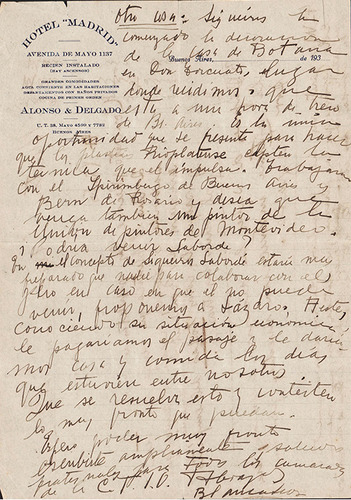 HOTEL "MADRID"
AVENIDA DE MAYO 1137
RECIEN INSTALADO
(HAY ASCENSOR)
GRANDES COMODIDADES
AGUA CORRIENTE EN LAS HABITACIONES
DEPARTAMENTOS CON BAÑOS PRIVADOS
COCINA DE PRIMER ORDEN
ALONSO & DELGADO
U. T. 38, MAYO
BUENOS AIRES
Buenos Aires, de 193
Otra cosa: Siqueiros ha
comenzado la decoración
de la casa de Botana
en Don Torcuato, lugar
donde residimos y que
está a una hora de tren
de Bs. Aires. Es la única
oportunidad que se presenta para hacer
que los plásticos rioplatenses capten la
técnica que él impulsa. Trabajan
con el Spilimbergo de Buenos Aires y
Berni de Rosario y desea que
venga también un pintor de la
Unión de pintores de Montevideo.
¿Podría venir Laborde?
En el concepto de Siqueiros Laborde estaría muy
preparado que nadie para colaborar con él
pero en caso en que él no puede
venir, proponemos a Lázaro.
conociendo su situación económica
le pagaríamos el pasaje y le daría-
mos casa y comida los días
que estuviere entre nosotros.
Que se resuelva esto y contesten
lo muy pronto que puedan.
Espero poder muy pronto
escribirte ampliamente saludos
fraternales para Todos los camaradas
de la C. T. I. U.
Blanca Luz